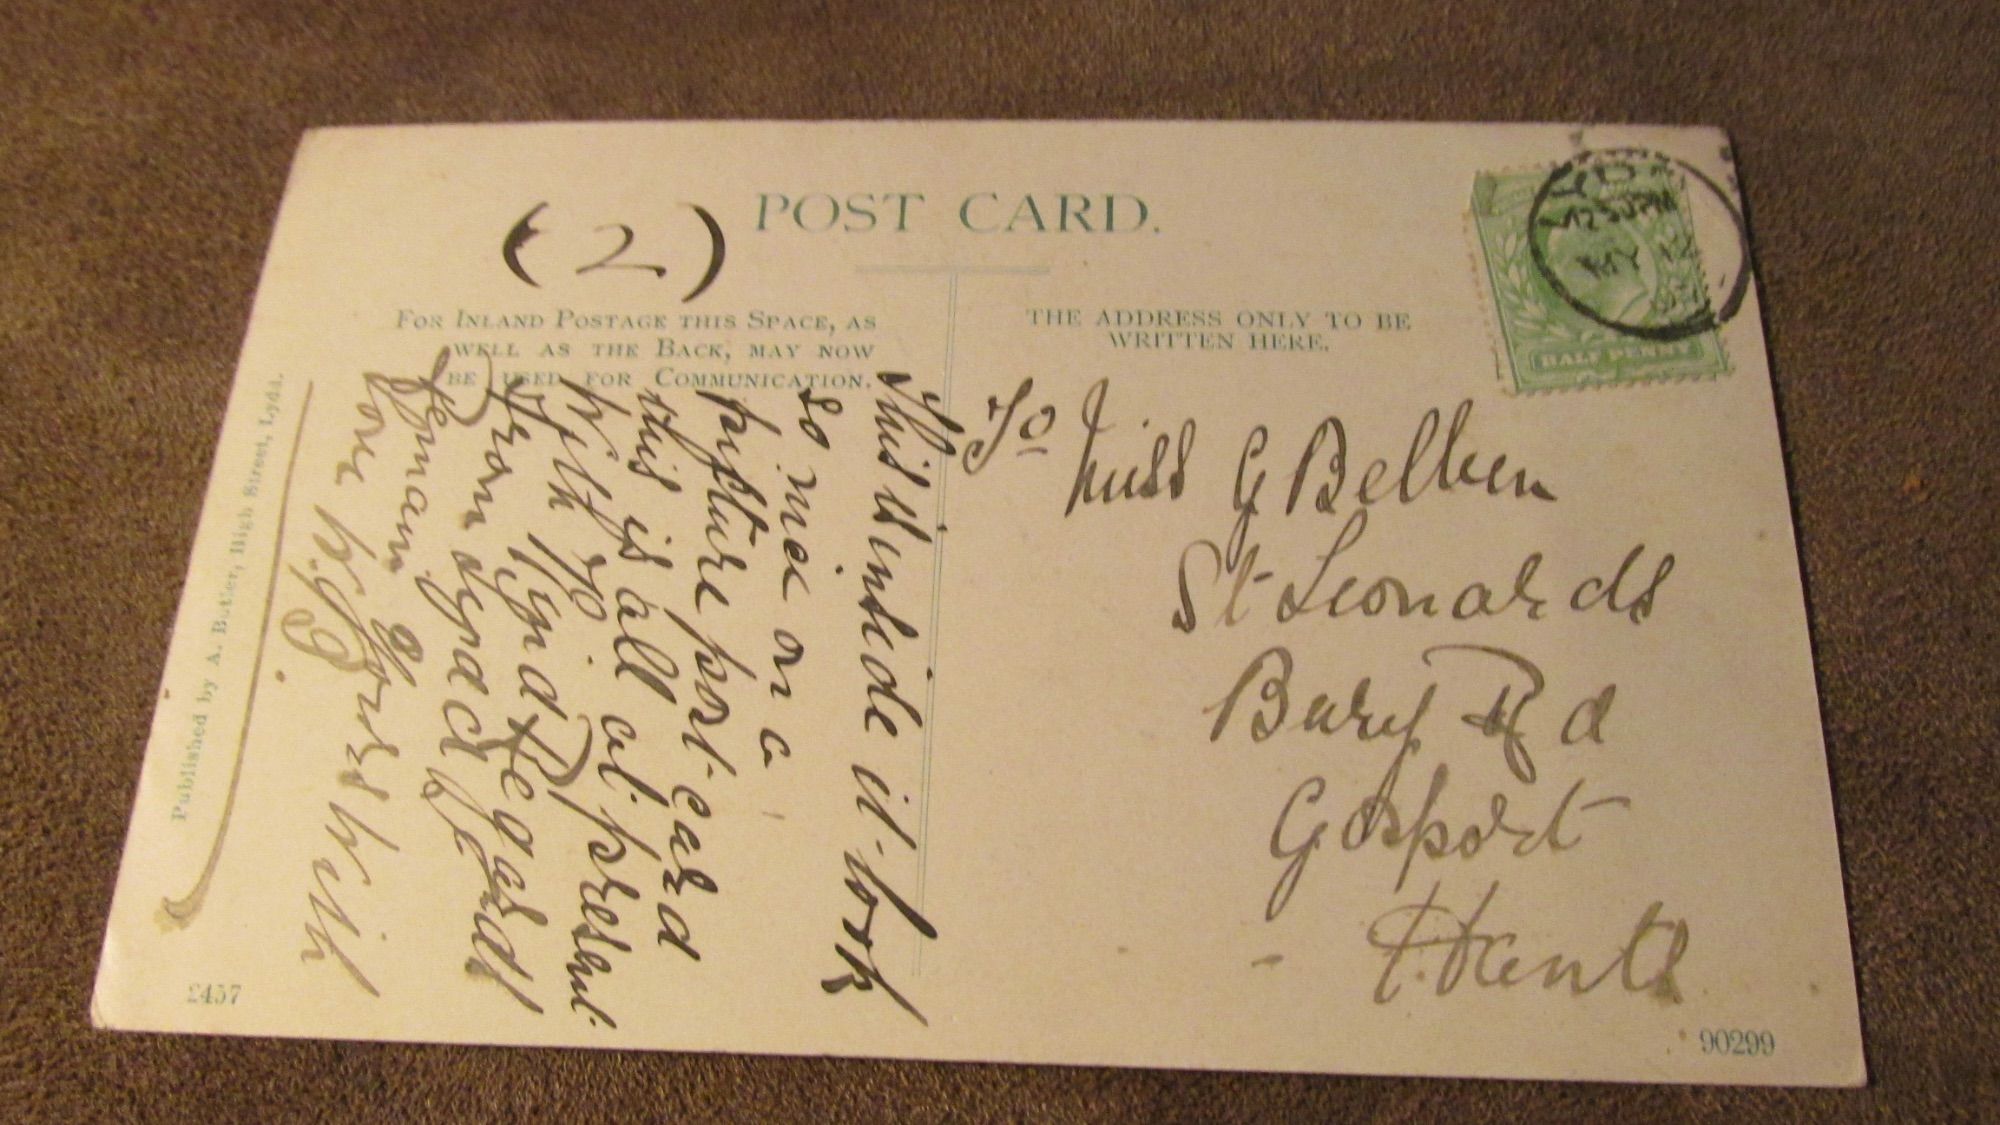 POST CARD.
(2)
FOR INLAND POSTAGE THIS SPACE, AS
WELL AS THE BACK, MAY NOW
BE USED FOR COMMUNICATION.
THE ADDRESS ONLY TO BE
WRITTEN HERE.
HALF PENNY
LYD
12 50 PM
MY 12
this it look
so nice on a
picture post card
this is all at present
With Kind Regards
from
Remain Yours With
love
To
Miss G Belben
St Leonards
Bury Rd
Gosport
Hants
Published by A. Butler, High Street, Lydd.
2457
90299